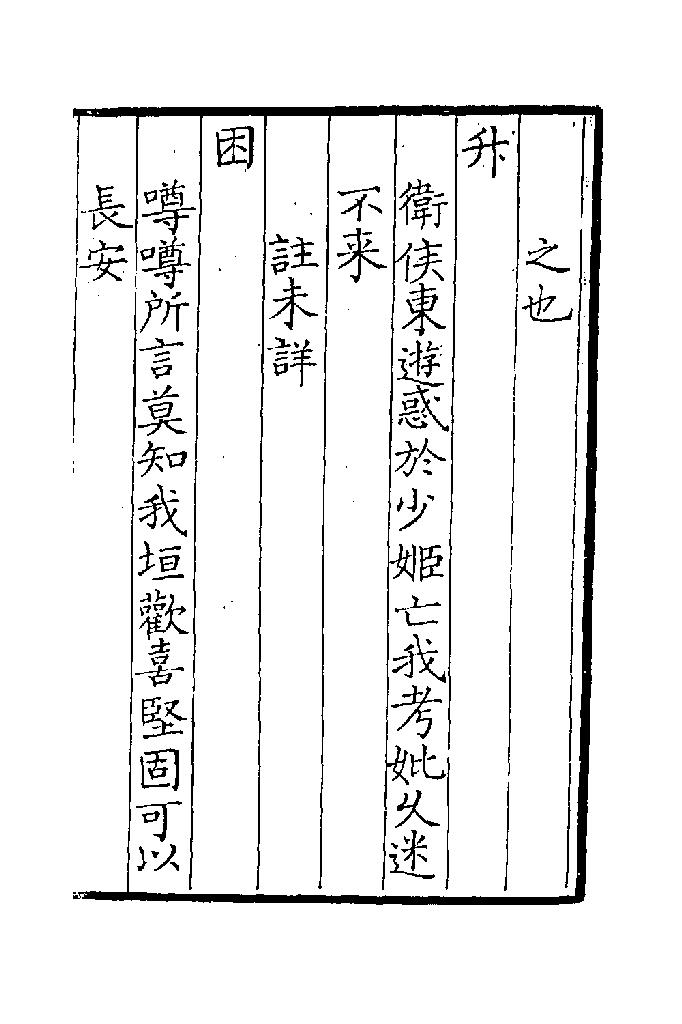 之也
升
衛侯東遊惑於少姬亡我考妣久迷
不来
註未詳
困
噂噂所言莫知我垣歡喜堅固可以
長安